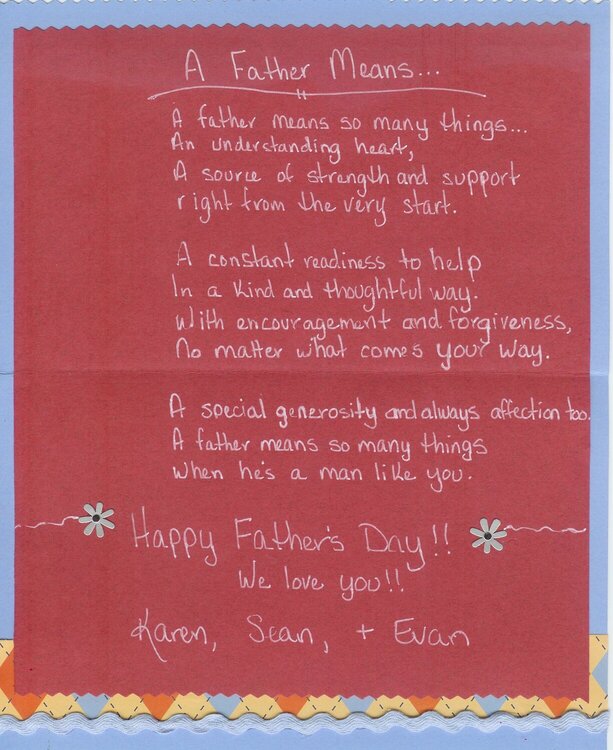 A Father Means...
A father means so many things...
An understanding heart,
A source of strength and support
right from the very start.
A constant readiness to help
In a kind and thoughtful way.
With encouragement and forgiveness,
No matter what comes your way.
A special generosity and always affection too.
A father means so many things
When he's a man like you.
Happy Father's Day!!
We love you!!
Karen, Sean, + Evan